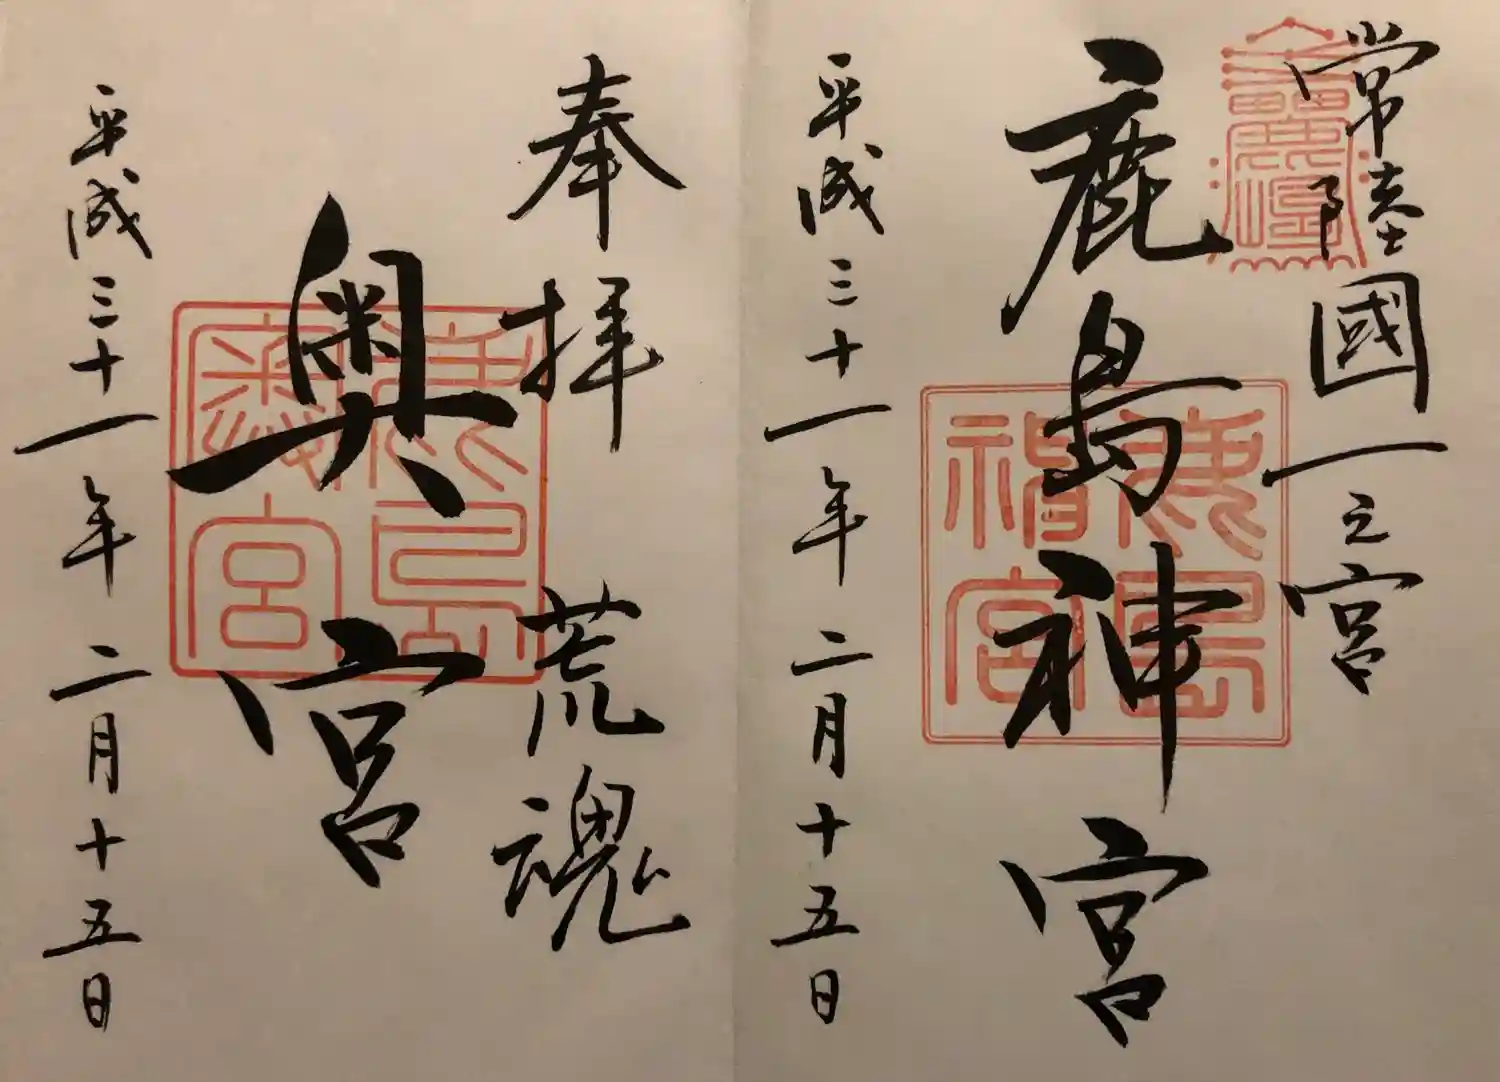 常陸國一之宮
鹿島神宮
平成三十一年二月十五日
奉拝 荒魂
奥宮
平成三十一年二月十五日
鹿島神宮
鹿島奥宮